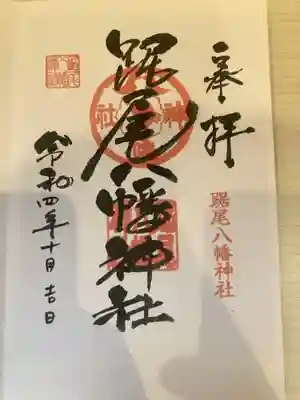 奉拝
踞尾八幡神社
踞尾八幡神社
令和四年十月吉日